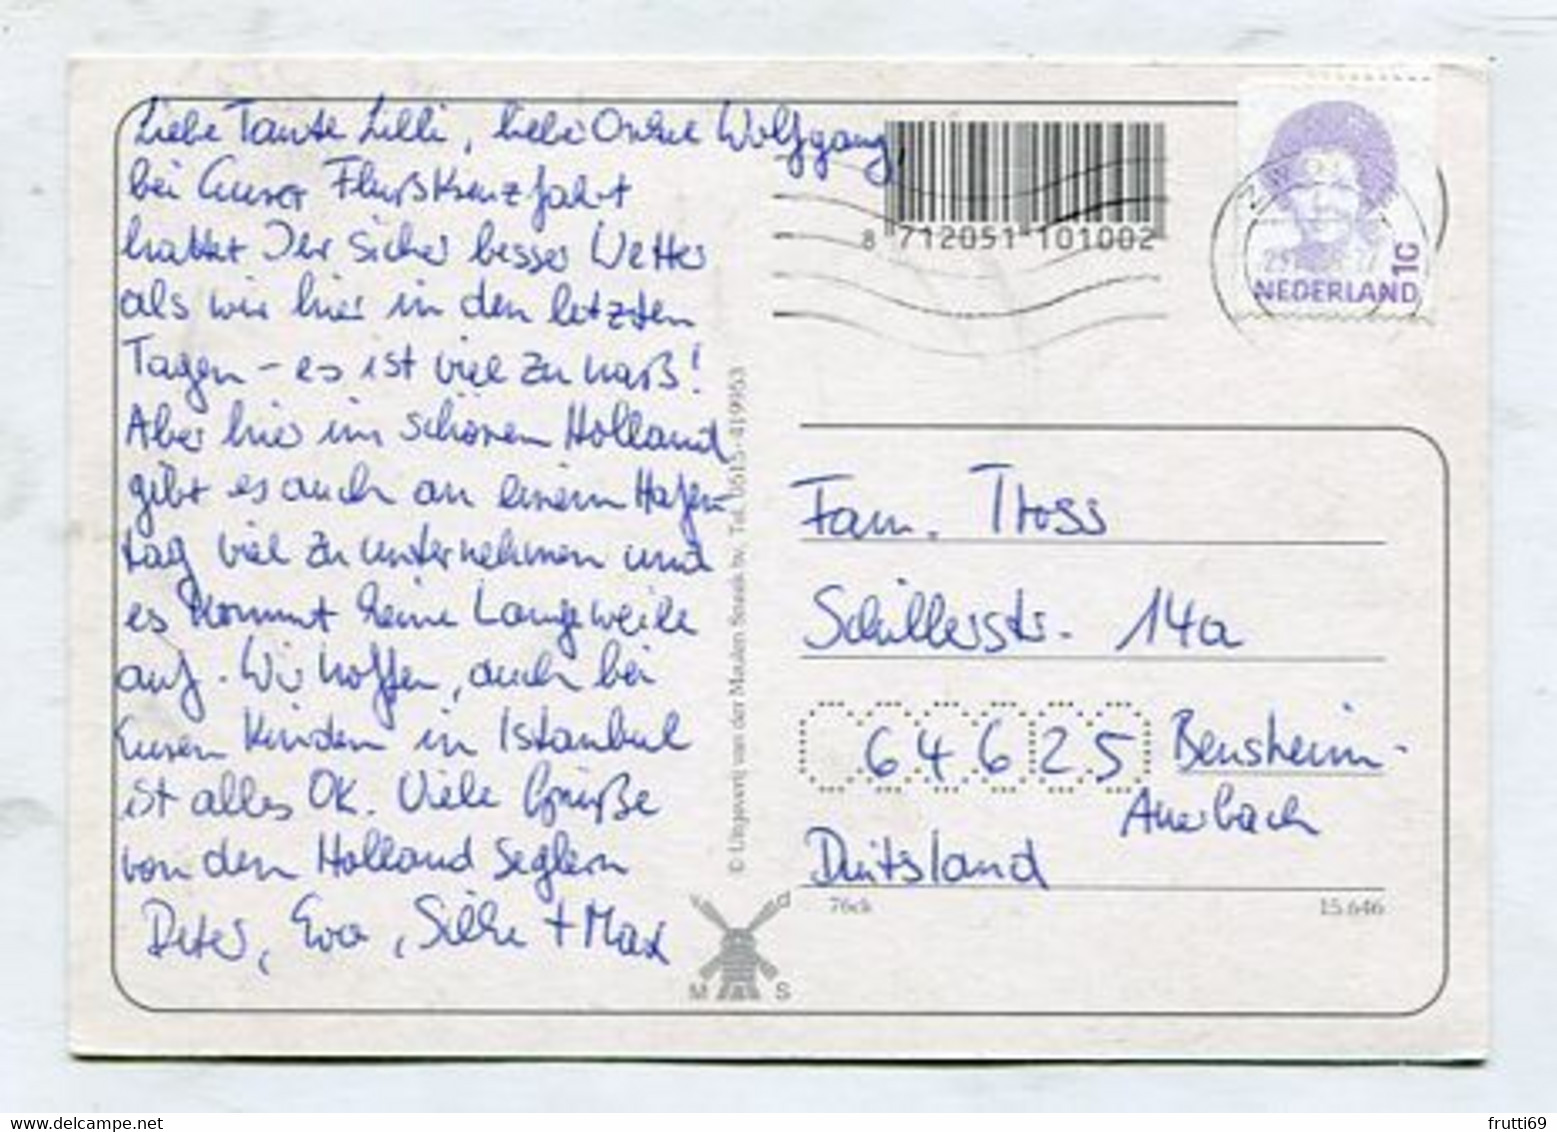 Liebe Tante Lilli, liebe Onkel Wolfgang,
bei Eurer Flußkreuzfahrt
hattet Ihr sicher besser Wetter
als wir hier in den letzten
Tagen – es ist viel zu naß!
Aber hier im schönen Holland
gibt es auch an einem Hafen-
tag viel zu unternehmen und
es kommt keine Langeweile
auf. Wir hoffen, auch bei
Euren Kindern in Istanbul
ist alles OK. Viele Grüße
von den Holland Seglern
Peter, Eva, Silke + Max
© Uitgeverij van der Meulen Sneek bv. Tel. 0515-419953
v d
M S
8 712051 101002
NEDERLAND
Fam. Tross
Schillerstr. 14a
64625 Bensheim-
Auerbach
Duitsland
15.646
frutti69